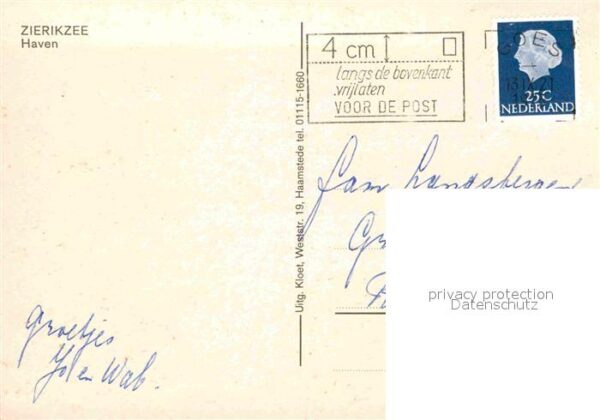 ZIERIKZEE
Haven
4 cm
langs de bovenkant
vrijlaten
VOOR DE POST
GOES
25C
NEDERLAND
Uitg. Kloet, Weststr. 19, Haamstede tel. 01115-1660
Fam
privacy protection
Datenschutz
Groetjes
en Wab.